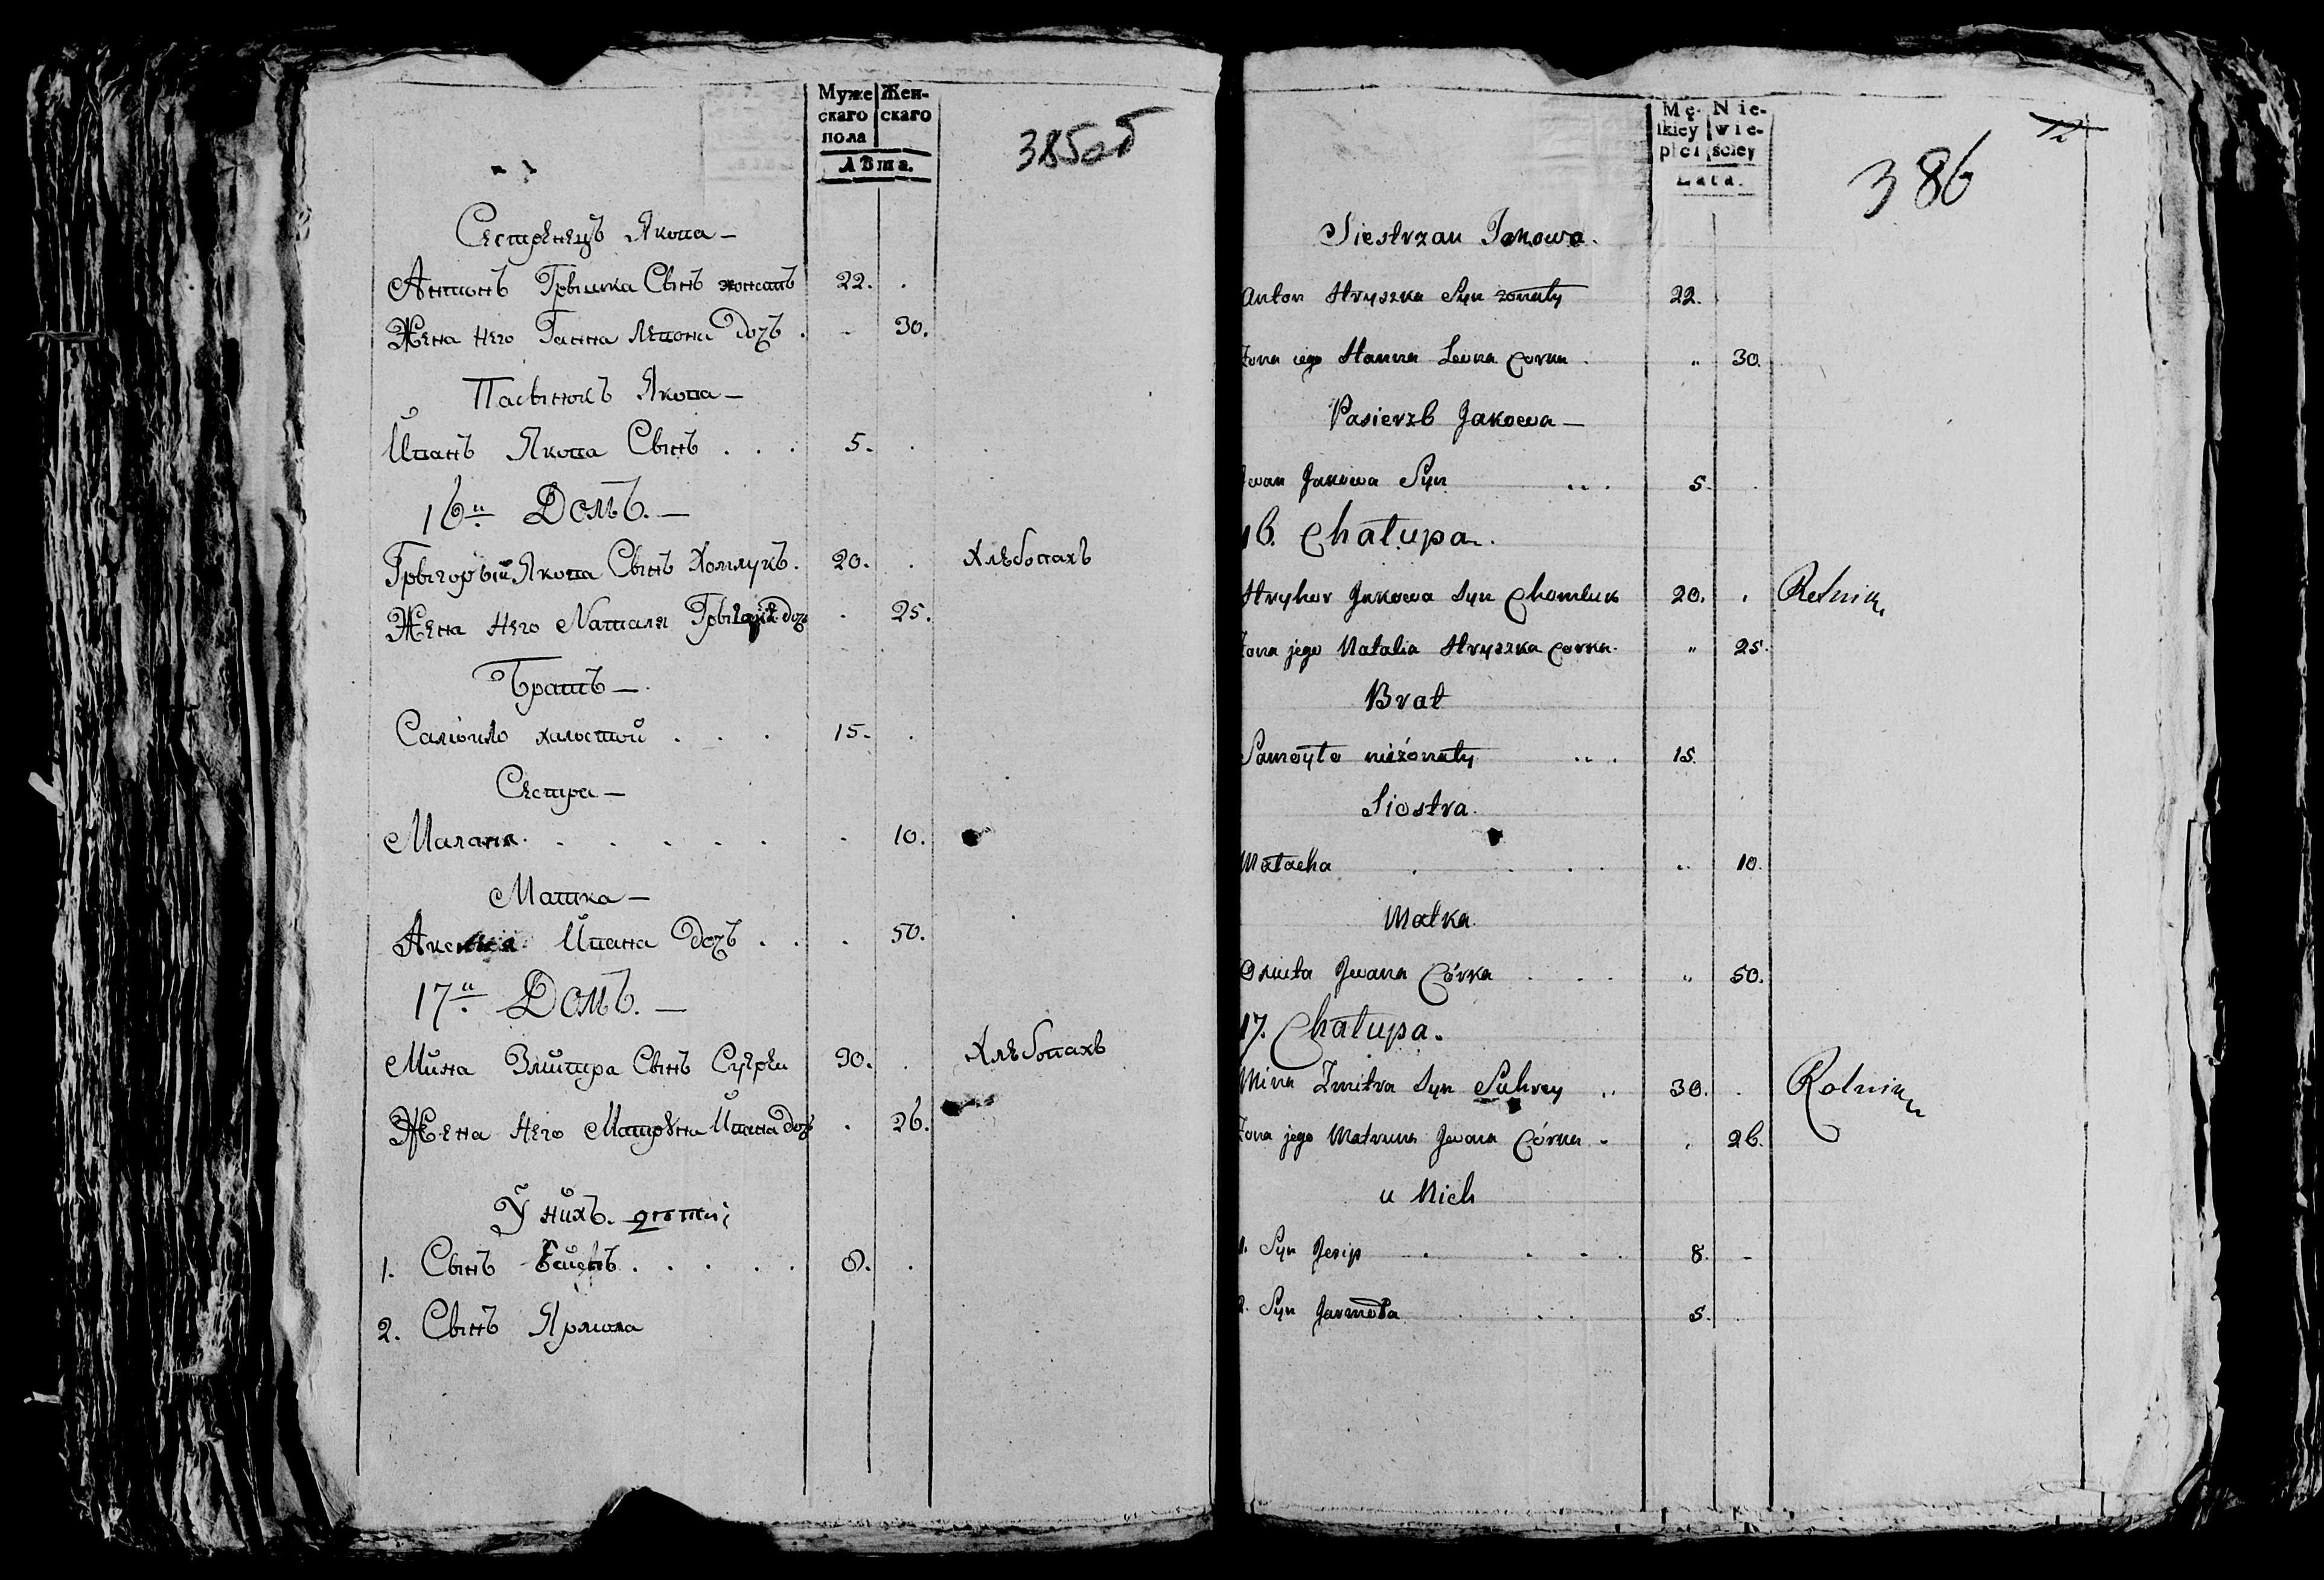 Муже Жен-
скаго скаго
пола
Лѣта.
385об
Сестрѣнецъ Якова —
Антонъ Грышка Сынъ жонатъ 22. .
Жена Него Ганна Левона Дочь . - 30.
Пасынокъ Якова —
Иванъ Якова Сынъ . . . 5. .
16й Домъ. —
Грыгорый Якова Сынъ Хомлукъ. 20. . Хлѣбопахъ
Жена Него Наталя дочь - 25.
Братъ —
Самойло холостой . . . 15. .
Сестра —
Маланя . . . . . - 10.
Матка —
Ивана Дочь . . . 50.
17й Домъ. —
Мина Змитра Сынъ Сугрей 30. . Хлѣбопахъ
Жена Него Матруна Ивана Дочь . 26.
У нихъ дѣти;
1. Сынъ . . . . . 8. .
2. Сынъ Ярмола
Mę- Nie-
skiey wie-
płci sciey
Lata.
386
12
Siestrzan Jakowa.
Anton Hryszka Syn zonaty 22.
Zona iego Hanna Leona Corka . „ 30.
Pasierzb Jakowa —
Jwan Jakowa Syn ... 5. .
16. Chałupa.
Hryhor Jakowa Syn Chomluk 20. . Rolnik
Zona jego Natalia Hryszka Corka. „ 25.
Brat
Samoyło nieżonaty ... 15.
Siostra.
. . . . „ 10.
Matka.
Jwana Córka . . . „ 50.
17. Chałupa.
Mina Zmitra Syn Suhrey .. 30. . Rolnik
Zona jego Matruna Jwana Córka . . 26.
u Nich
1. Syn Jesip . . . . 8. -
2. Syn Jarmoła . . . 5. .